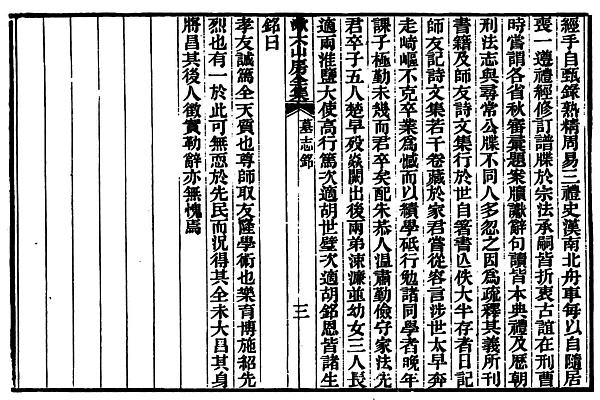 經手自甄錄熟精周易三禮史漢南北舟車每以自隨居
喪一遵禮經修訂譜牒於宗法承嗣皆折衷古誼在刑曹
時嘗謂各省秋審彙題案牘讞辭句讀皆本典禮及歷朝
刑法志與尋常公牒不同人多忽之因為疏釋其義所刊
書籍及師友詩文集行於世自著書亾佚大半存者日記
師友記詩文集若干卷藏於家君嘗從容言涉世太早奔
走崎嶇不克卒業為憾而以績學砥行勉諸同學者晚年
課子極勤未幾而君卒矣配朱恭人溫肅勤儉守家法先
君卒子五人楚早歿焱閎出後兩弟涑濂並幼女三人長
適兩淮鹽大使高行篤次適胡世璧次適胡銘恩皆諸生
銘曰
孝友誠篤全天質也尊師取友隆學術也樂育博施紹先
烈也有一於此可無恧於先民而況得其全未大昌其身
將昌其後人徵實勒辭亦無愧焉
山房全集
墓志銘
三